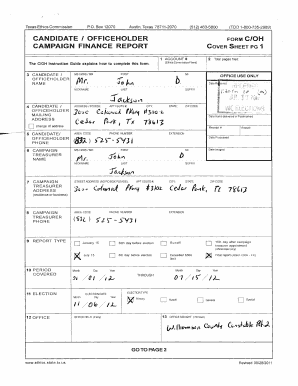 Texas Ethics Commission P.O. Box 12070 Austin, Texas 78711-2070 (512) 463-5800 (TDD 1-800-735-2989)
CANDIDATE / OFFICEHOLDER
CAMPAIGN FINANCE REPORT
FORM C/OH
COVER SHEET PG 1
The C/OH Instruction Guide explains how to complete this form.
1 ACCOUNT #
2 Total pages filed:
3 CANDIDATE / OFFICEHOLDER NAME
MS / MRS / MR FIRST MI
Mr. John D
NICKNAME LAST SUFFIX
Jackson
OFFICE USE ONLY
4 CANDIDATE / OFFICEHOLDER MAILING ADDRESS
Change of Address
Cedar Park, Tx 78613
5 CANDIDATE/ OFFICEHOLDER PHONE
AREA CODE PHONE NUMBER EXTENSION
525-5431
6 CAMPAIGN TREASURER NAME
MS / MRS / MR FIRST MI
Mr. John D
NICKNAME LAST SUFFIX
Jackson
7 CAMPAIGN TREASURER ADDRESS
Cedar Park, Tx 78613
8 CAMPAIGN TREASURER PHONE
AREA CODE PHONE NUMBER EXTENSION
525-5431
9 REPORT TYPE
January 15
30th day before election
Runoff
15th day after campaign treasurer appointment
X July 15
8th day before election
Exceeded $500 limit
X Final report
10 PERIOD COVERED
Month Day Year
/01/12
THROUGH
Month Day Year
07/15/12
11 ELECTION
ELECTION DATE
Month Day Year
11/06/12
ELECTION TYPE
X Primary
Runoff
General
Special
12 OFFICE
OFFICE HELD (if any)
13 OFFICE SOUGHT (if known)
Williamson County Constable Pct 2
GO TO PAGE 2
www.ethics.state.tx.us
Revised 09/28/2011